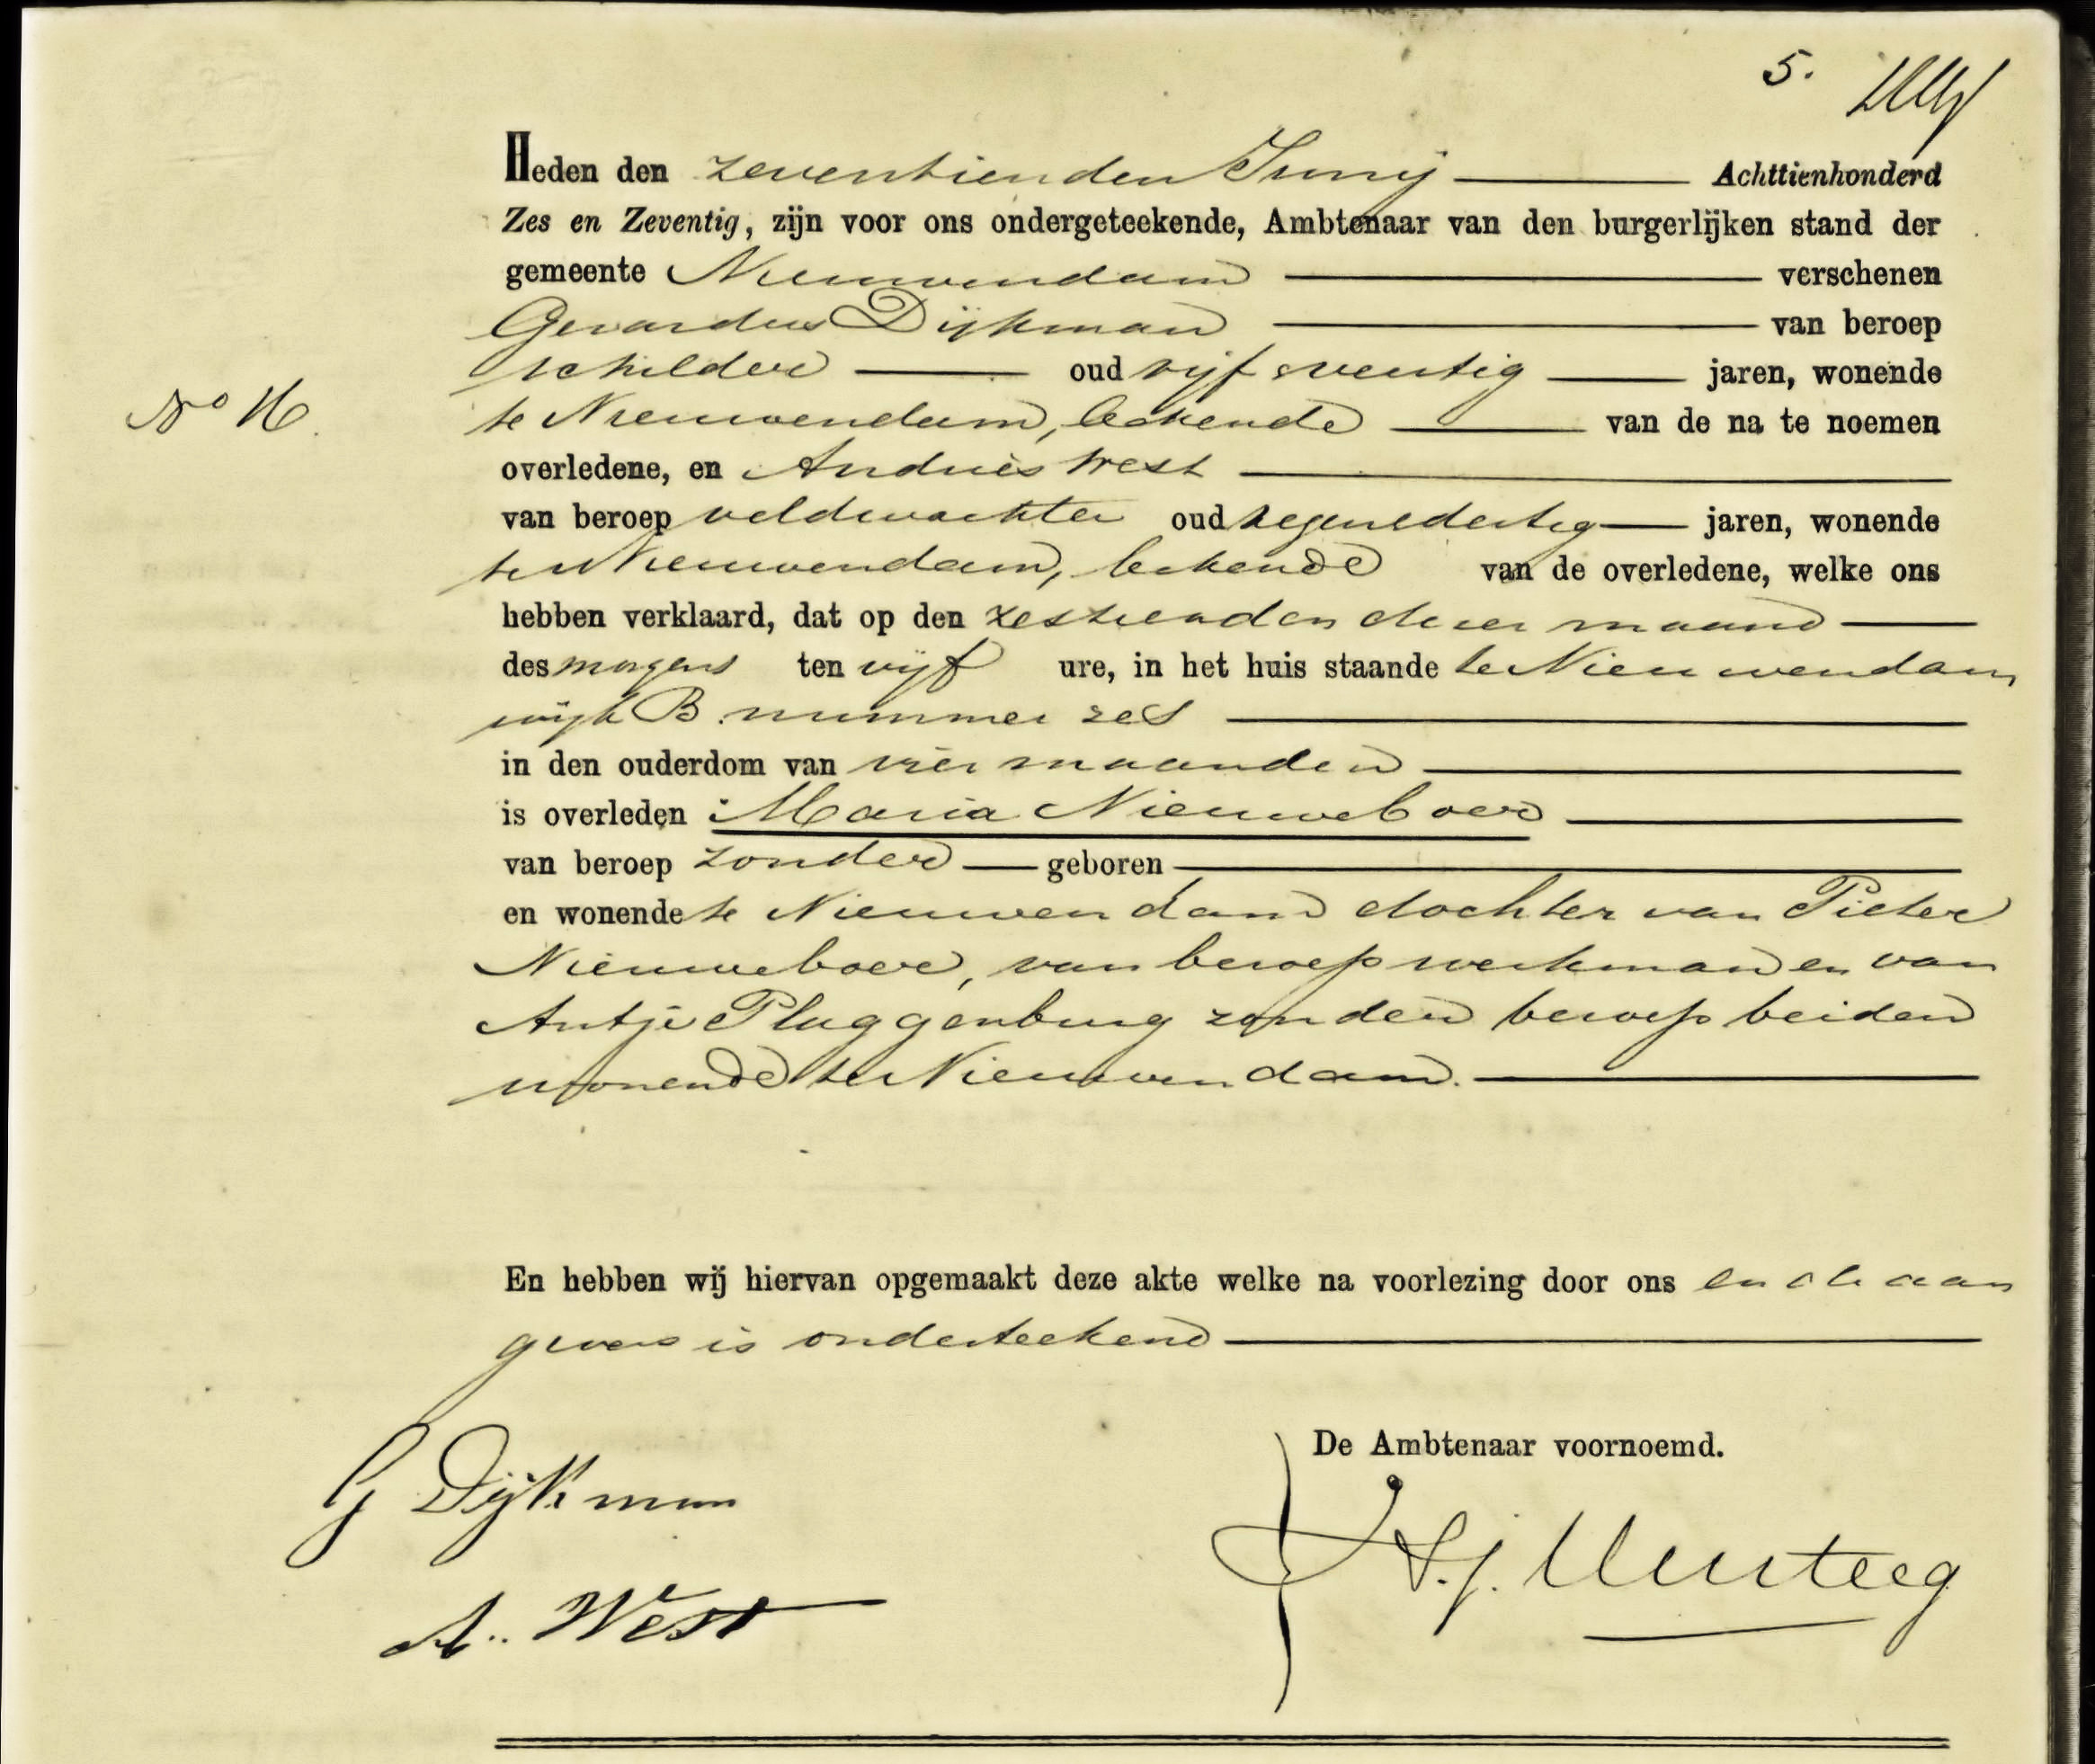 5.
Heden den zeventienden Junij Achttienhonderd
Zes en Zeventig, zijn voor ons ondergeteekende, Ambtenaar van den burgerlijken stand der
gemeente Nieuwendam verschenen
Gerardus Dijkman van beroep
schilder oud vijf eventig jaren, wonende
No 16.
te Nieuwendam, bekende van de na te noemen
overledene, en Andries West
van beroep veldwachter oud negenedertig jaren, wonende
te Nieuwendam, bekende van de overledene, welke ons
hebben verklaard, dat op den zestienden dezer maand
des morgens ten vijf ure, in het huis staande te Nieuwendam
wijk B. nummer zes
in den ouderdom van vier maanden
is overleden Maria Nieuweboer
van beroep zonder geboren
en wonende te Nieuwendam dochter van Pieter
Nieuweboer, van beroep werkman en van
Antje Pluggenburg zonder beroep beiden
wonende te Nieuwendam.
En hebben wij hiervan opgemaakt deze akte welke na voorlezing door ons en de aan
gevers is onderteekend
De Ambtenaar voornoemd.
G Dijkman
A. West